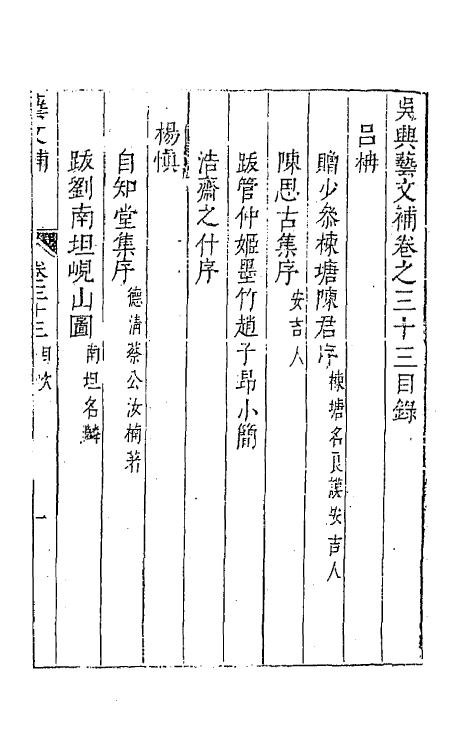 吳興藝文補卷之三十三目錄
呂柟
贈少參棟塘陳君序棟塘名良謨安吉人
陳思古集序安吉人
跋管仲姬墨竹趙子昻小簡
浩齋之什序
楊慎
自知堂集序德清蔡公汝楠著
跋劉南坦峴山圖南坦名麟
藝文補 卷三十三目次 一